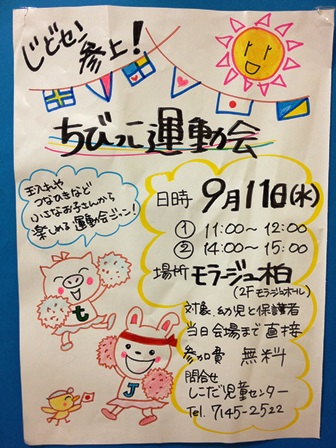 じどセン
参上!
ちびっこ運動会
玉入れや
つなひきなど
小さなお子さんから
楽しめる運動会ジャン!
日時 9月11日(水)
① 11:00〜12:00
② 14:00〜15:00
場所 モラージュ柏
対象 幼児と保護者
当日会場まで直接
参加費 無料
問合せ
しこだ児童センター
Tel. 7145-2522
t
J